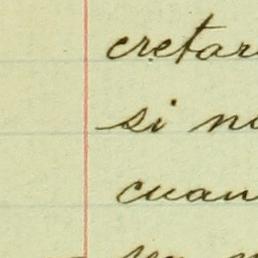 cretar
si no
cuan